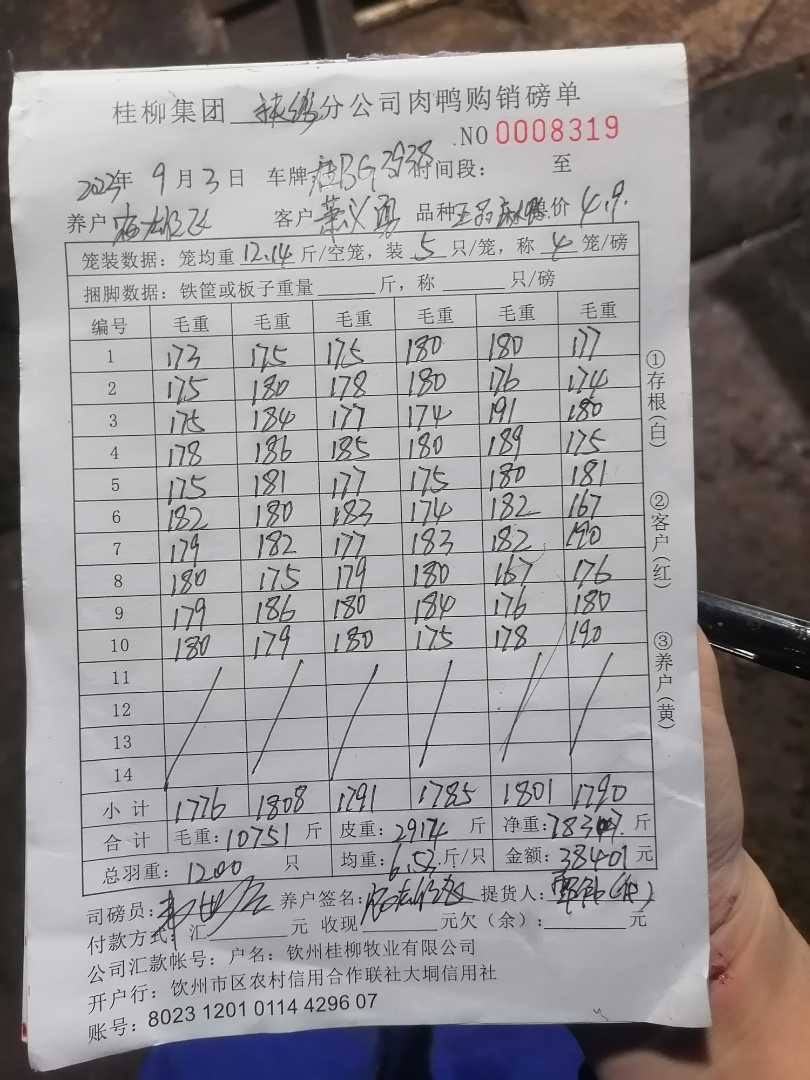 桂柳集团 分公司肉鸭购销磅单
.NO 0008319
2023年 9月3日 车牌:桂BG3938 时间段: 至
养户 客户 品种 价 4.9.
笼装数据:笼均重12.14斤/空笼,装5只/笼,称4笼/磅
捆脚数据:铁筐或板子重量 斤,称 只/磅
编号 毛重 毛重 毛重 毛重 毛重 毛重
1 173 175 175 180 180 177
2 175 180 178 180 176 174
3 175 184 177 174 191 180
4 178 186 185 180 189 175
5 175 181 177 175 180 181
6 182 180 183 174 182 167
7 179 182 177 183 182 190
8 180 175 179 180 167 176
9 179 186 180 184 176 180
10 180 179 180 175 178 190
11
12
13
14
小计 1776 1808 1791 1785 1801 1790
合计 毛重:10751斤 皮重:2914斤 净重: 斤
总羽重:1200只 均重:6.53斤/只 金额:38401元
司磅员: 养户签名: 提货人:
付款方式:汇 元 收现 元欠(余): 元
公司汇款帐号:户名:钦州桂柳牧业有限公司
开户行:钦州市区农村信用合作联社大垌信用社
账号:8023 1201 0114 4296 07
①存根(白)
②客户(红)
③养户(黄)